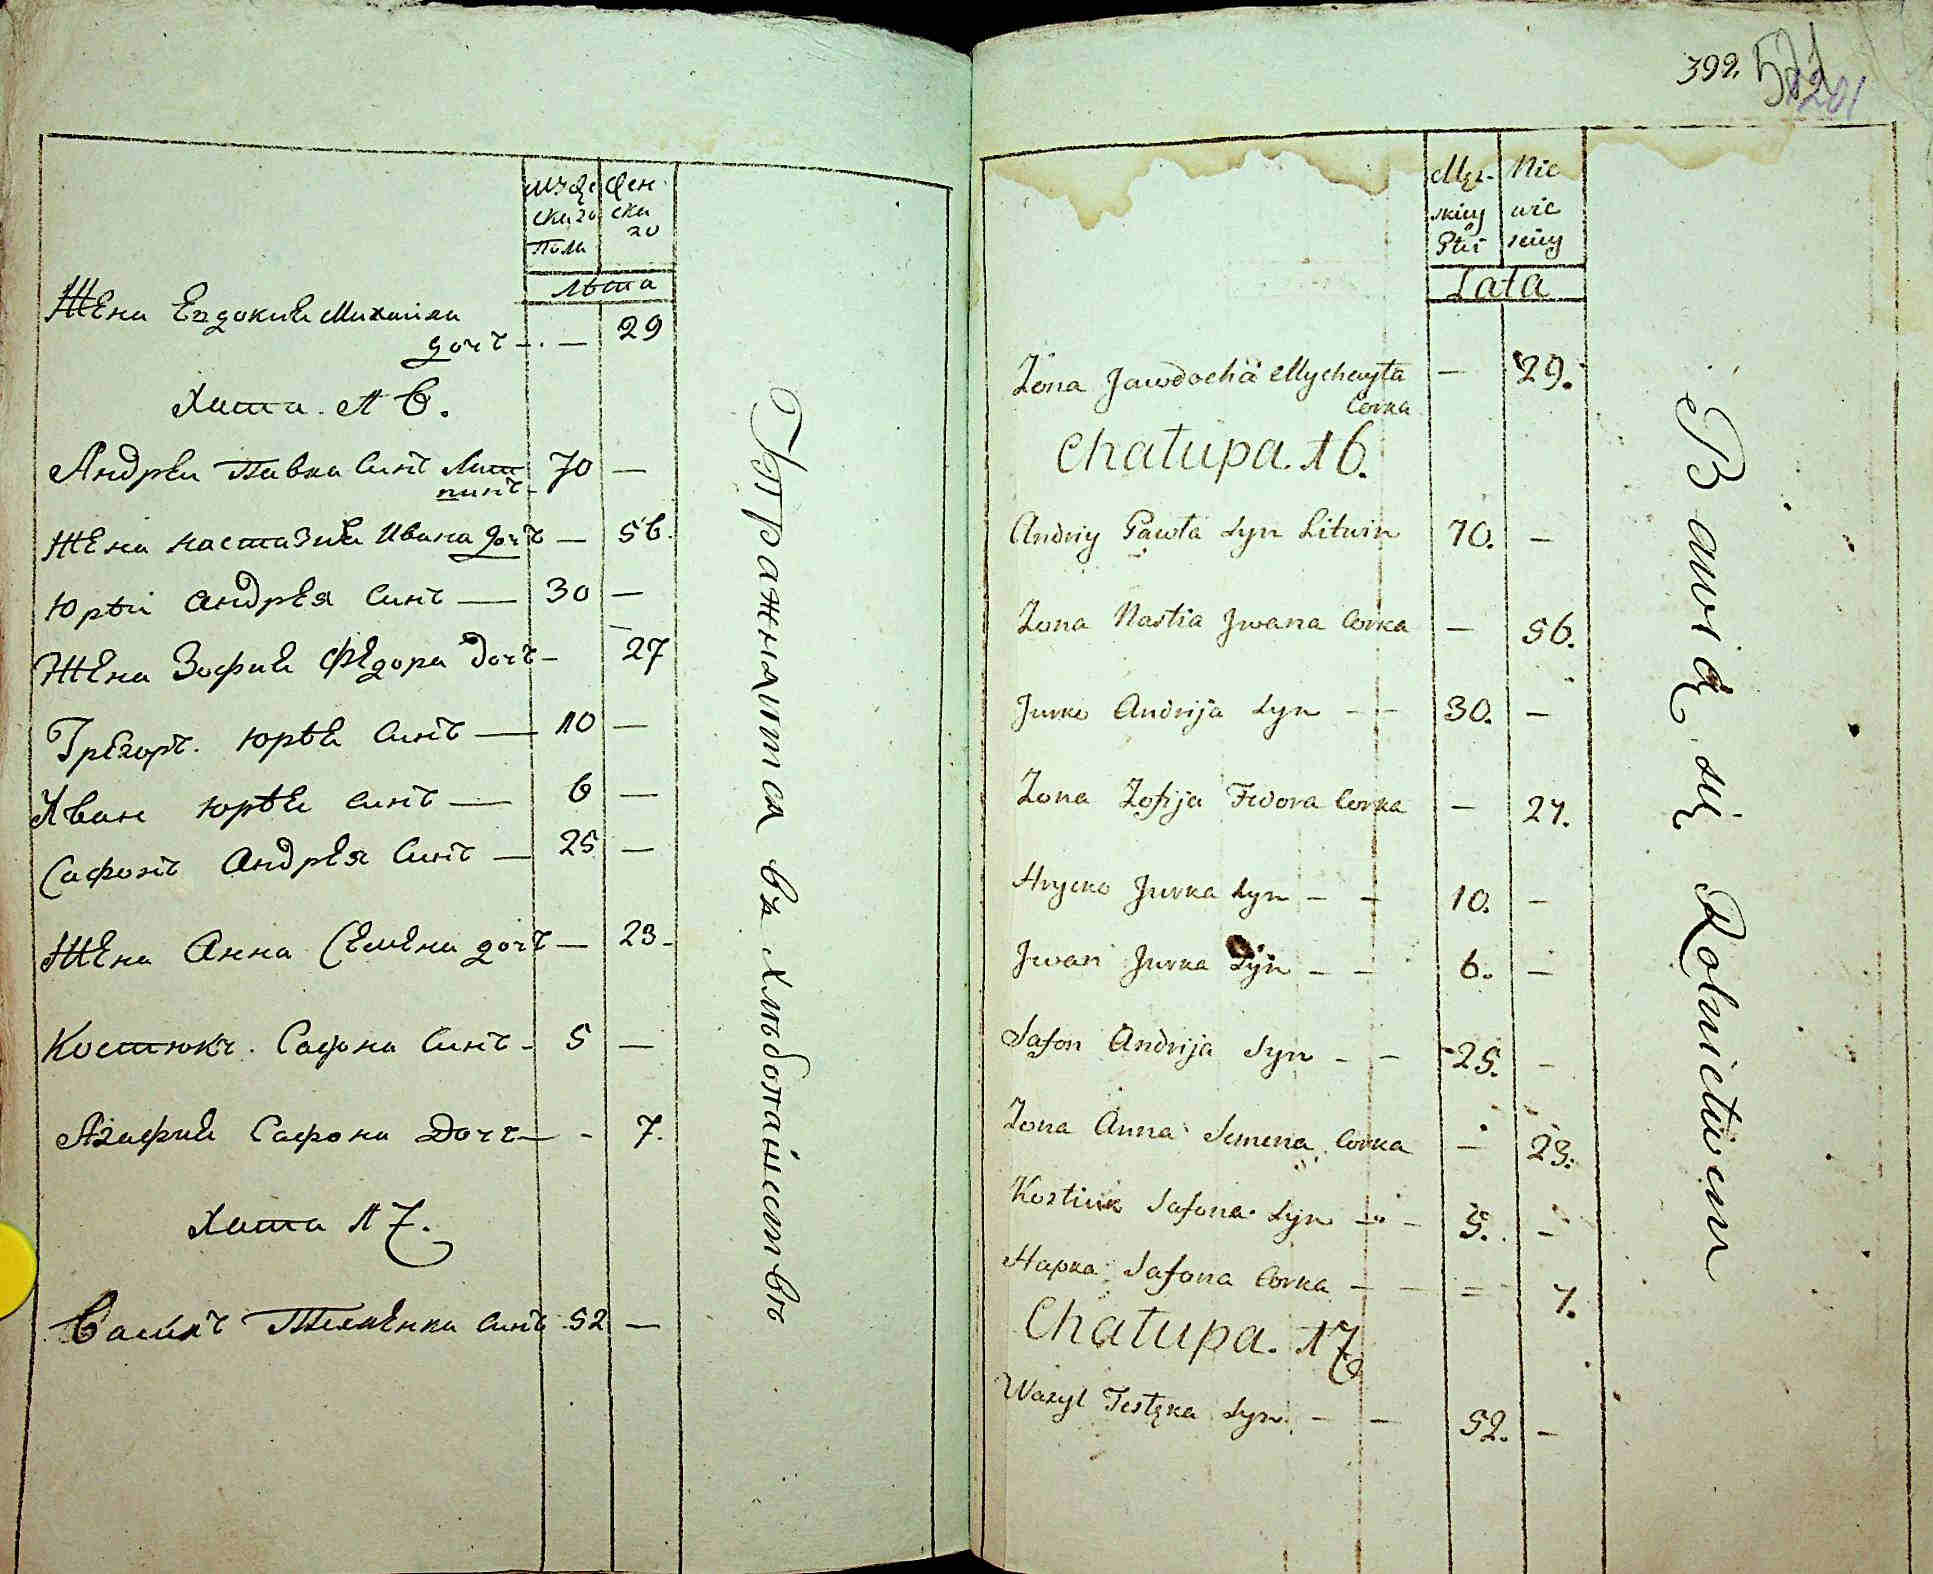 мужескаго пола
женскаго
лѣта
Жена Евдокия Михаила
дочъ — — 29
Хата 16.
Андрей Павла синъ Лит
винъ 70 —
Жена Настазия Ивана дочъ — 56.
Юрѣй Андрея синъ — 30 —
Жена Зофия Федора дочъ — 27
Грегоръ Юрѣя синъ — 10 —
Иван Юрѣя синъ — 6 —
Сафонъ Андрея синъ — 25 —
Жена Анна Семена дочъ — 23
Костюкъ Сафона синъ 5 —
Агафия Сафона дочъ — - 7.
Хата 17.
Василъ синъ 52 —
Упражняются въ хлѣбопашествѣ
392.
Męzkiey Płci
Niewieściey
Lata
Zona Jawdocha Mychayła — 29.
Corka
Chałupa. 16.
Andriy Pawła Syn Litwin 70. —
Zona Nastia Jwana Corka — 56.
Jurko Andrija Syn — — 30. —
Zona Zofija Fedora Corka — 27.
Hrycko Jurka Syn — — 10. —
Jwan Jurka Syn — — 6. —
Safon Andrija Syn — — 25. —
Zona Anna Semena Corka — 23.
Kostiuk Safona Syn — — 5. —
Hapka Safona Corka — — = 7.
Chałupa. 17
Wasyl Syn — — 52. —
Bawią się Rolnictwem